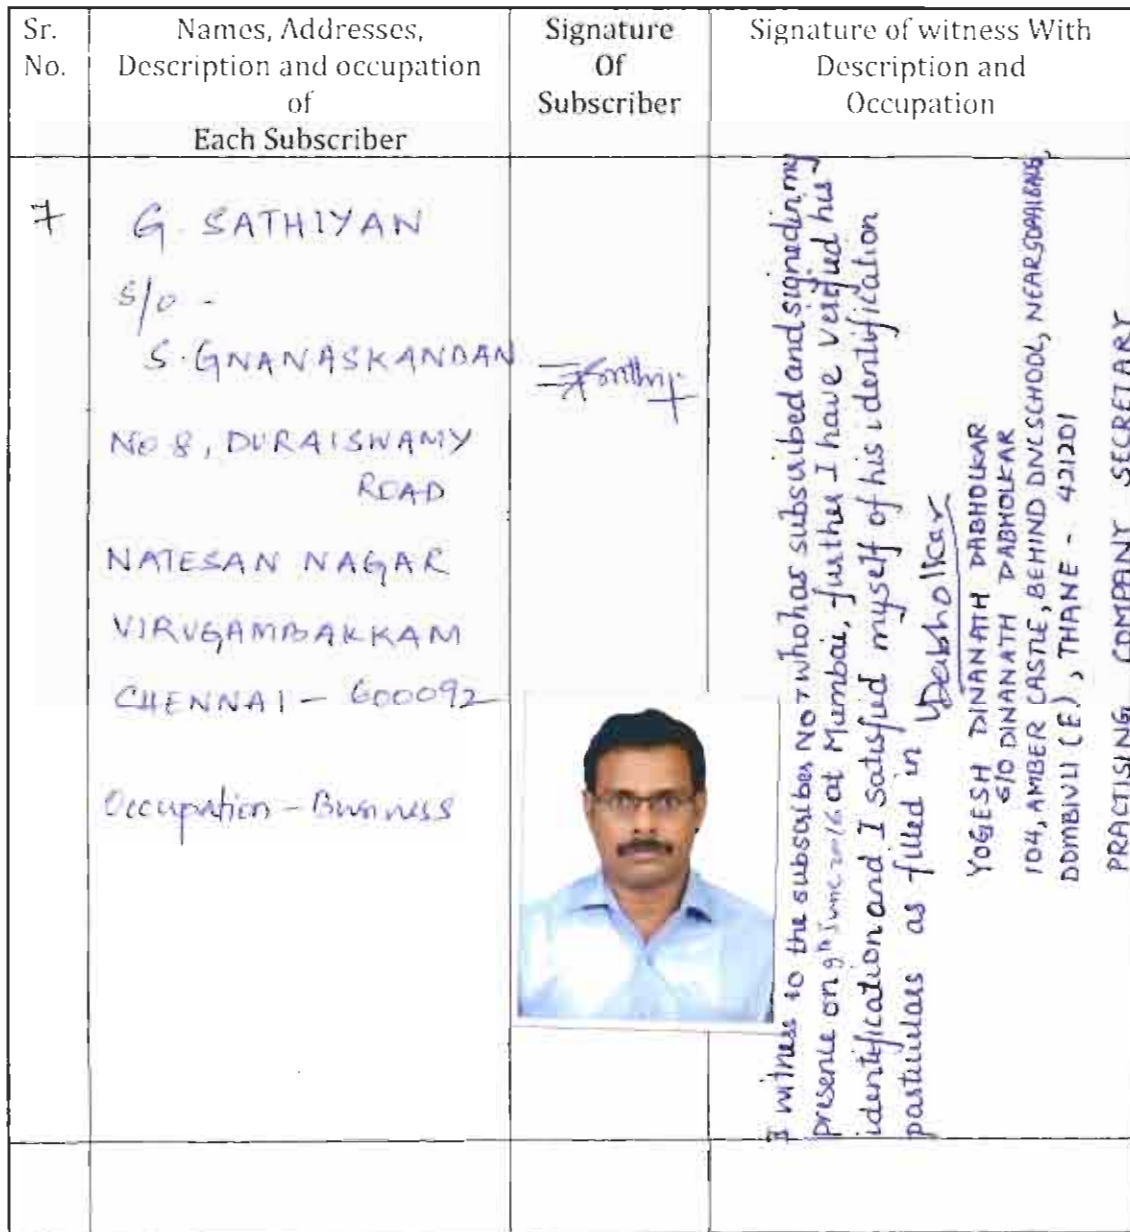 Sr.
No.
Names, Addresses,
Description and occupation
of
Each Subscriber
Signature
Of
Subscriber
Signature of witness With
Description and
Occupation
7
G. SATHIYAN
S/O -
S. GNANASKANDAN
NO 8, DURAISWAMY
ROAD
NATESAN NAGAR
VIRUGAMBAKKAM
CHENNAI - 600092
Occupation - Business
I witness to the subscriber No 7 who has subscribed and signed in my
presence on 9th June 2016 at Mumbai, further I have verified his
identification and I satisfied myself of his identification
particulars as filled in
YDabholkar
YOGESH DINANATH DABHOLKAR
S/O DINANATH DABHOLKAR
104, AMBER CASTLE, BEHIND DNC SCHOOL, NEAR GOPALBAUG,
DOMBIVLI (E), THANE - 421201
PRACTISING COMPANY SECRETARY